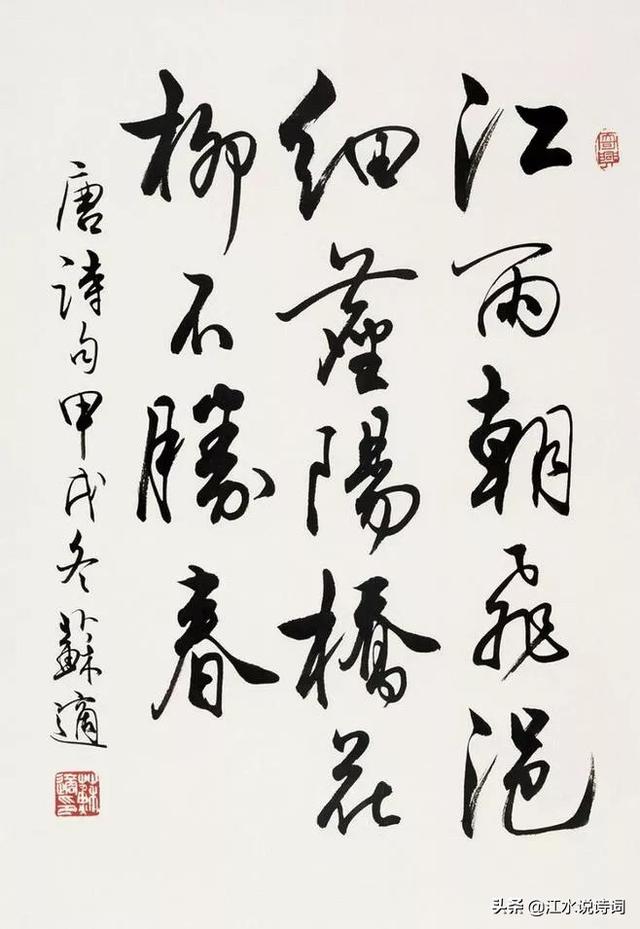 江雨朝飛浥
細塵陽橋花
柳不勝春
唐詩句甲戌冬蘇適
头条 @江水说诗词